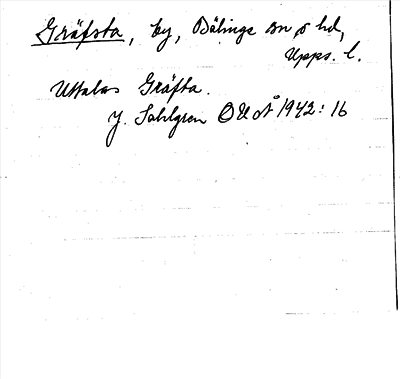 Gräfsta, by, Bälinge sn o hd,
Upps. l.
Uttalas Gräfta.
J. Sahlgren OUÅ 1942: 16